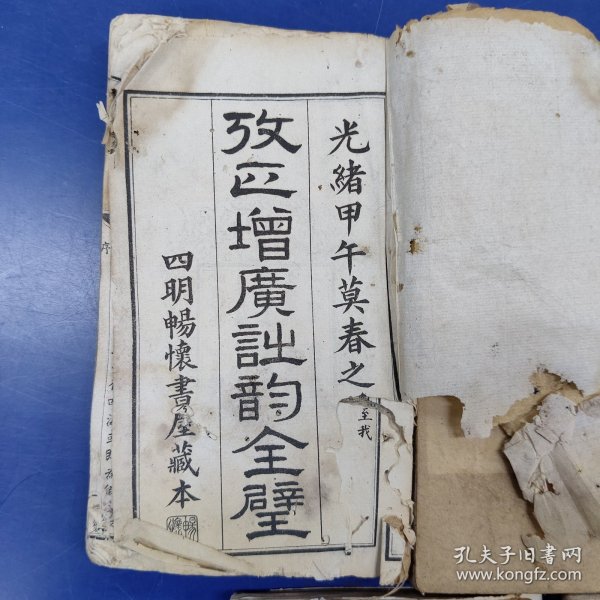 光緒甲午莫春之
至我
攷正增廣詩韵全璧
四明暢懷書屋藏本
序
孔夫子旧书网
www.kongfz.com